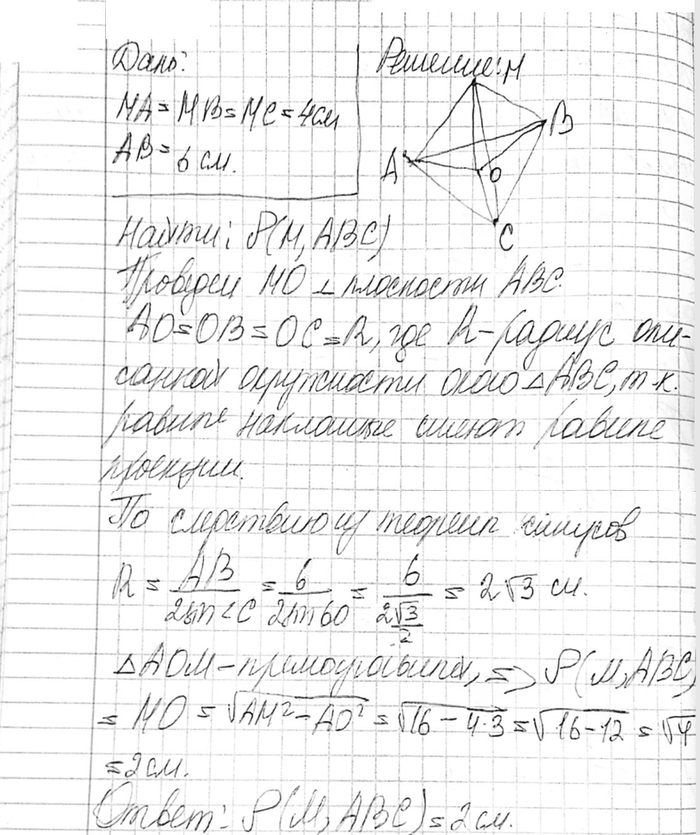 Дано:
MA = MB = MC = 4 см
AB = 6 см.
Решение:
M
B
A
O
C
Найти: ρ(M, ABC)
Проведем MO ⊥ плоскости ABC.
AO = OB = OC = R, где R - радиус опи-
санной окружности около △ABC, т.к.
равные наклонные имеют равные
проекции.
По следствию из теоремы синусов
R = AB / 2sin∠C = 6 / 2sin60 = 6 / (2√3/2) = 2√3 см.
△AOM - прямоугольный, => ρ(M, ABC)
= MO = √(AM² - AO²) = √(16 - 4·3) = √(16-12) = √4
= 2 см.
Ответ: ρ(M, ABC) = 2 см.